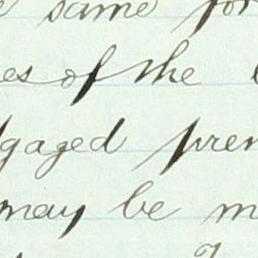 same for
es of the
gaged prem
may be m